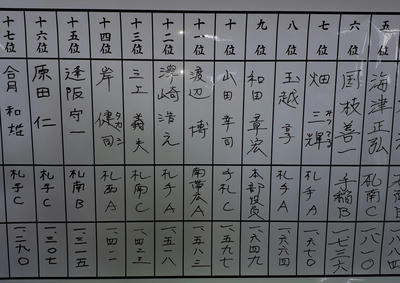 五位
海津正弘
札南C
六位
国枝善一
手稲B
一.七三六
七位
畑三輝
みつてる
札手A
一.六七〇
八位
玉越享
札手A
一.六六四
九位
和田章宏
本部役員
一.六四九
十位
山田幸司
手札C
一.五九七
十一位
渡辺博
南帯広A
一.五八三
十二位
澤崎浩之
札手A
一.五一八
十三位
三上義夫
札南C
一.四二三
十四位
岸健司
タカシ
札西A
十五位
逢阪守一
札南B
一.三一五
十六位
原田仁
札手C
一.三〇七
十七位
合月和雄
札手C
一.二九〇